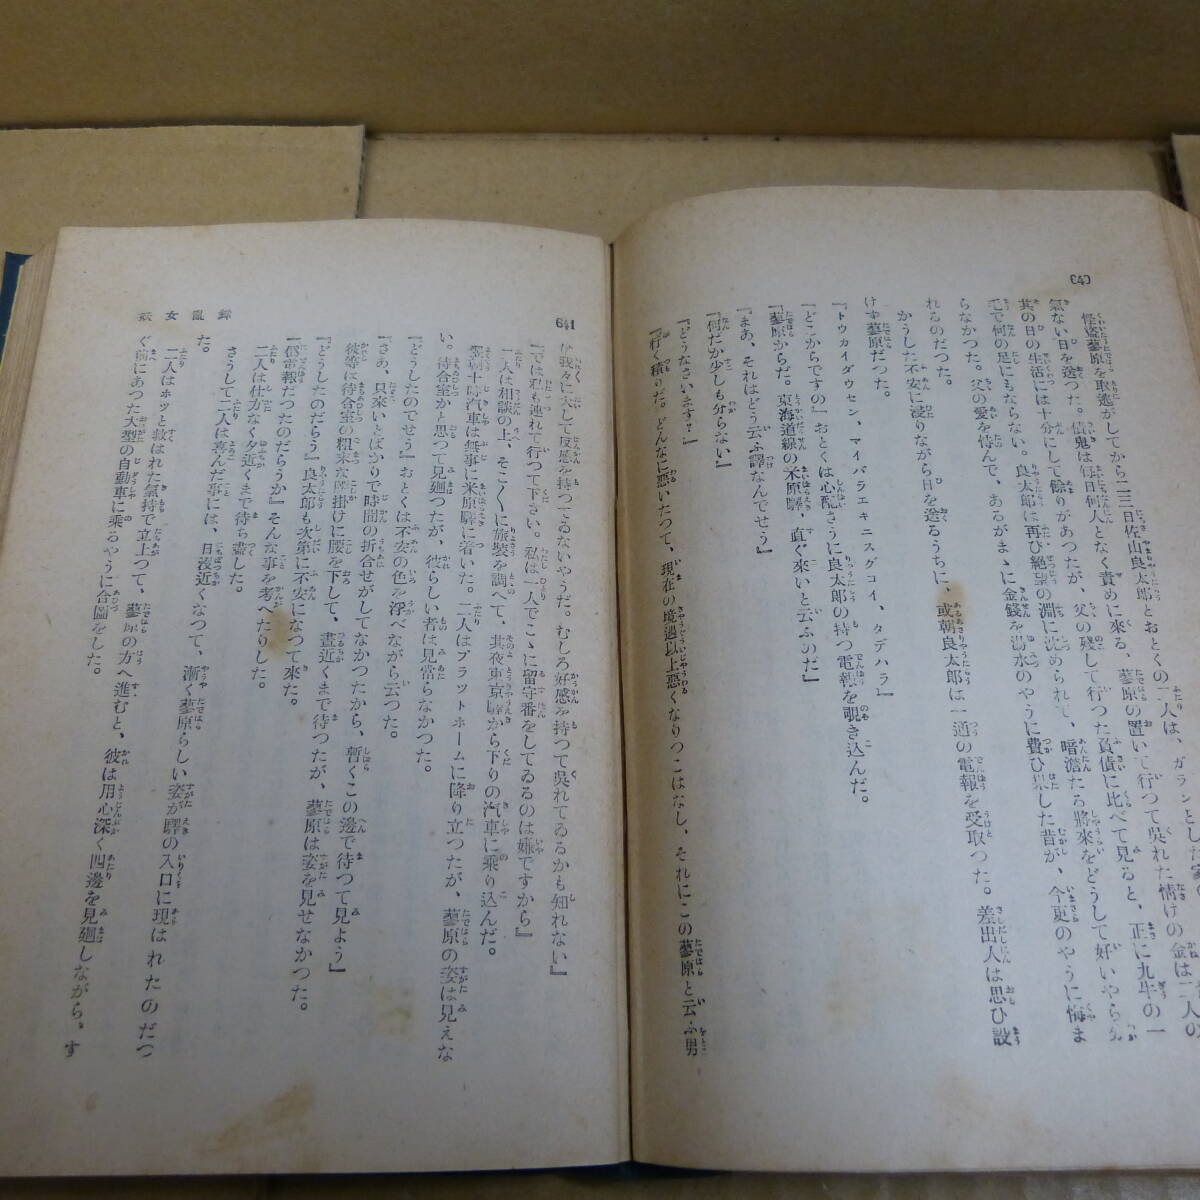 640
怪盗蓼原を取逃がしてから二三日佐山良太郎とおとくの二人は、ガランとした家
氣ない日を送つた。債鬼は毎日何人となく責めに來る、蓼原の置いて行つて呉れた情けの金は二人の
其の日の生活には十分にして餘りがあつたが、父の殘して行つた負債に比べて見ると、正に九牛の一
毛で何の足にもならない。良太郎は再び絶望の淵に沈められて、暗澹たる將來をどうして好いやら分
らなかつた。父の愛を恃んで、あるがまゝに金錢を湯水のやうに費ひ果した昔が、今更のやうに悔ま
れるのだつた。
かうした不安に浸りながら日を送るうちに、或朝良太郎は一通の電報を受取つた。差出人は思ひ設
けず蓼原だつた。
『トウカイダウセン、マイバラエキニスグコイ、タデハラ』
『どこからですの』おとくは心配さうに良太郎の持つ電報を覗き込んだ。
『蓼原からだ。東海道線の米原驛へ直ぐ來いと云ふのだ』
『まあ、それはどう云ふ譯なんでせう』
『何だか少しも分らない』
『どうなさいます？』
『行く積りだ。どんなに惡いたつて、現在の境遇以上惡くなりつこはなし、それにこの蓼原と云ふ男
641
妖女亂舞
は我々に大して反感を持つてゐないやうだ。むしろ好感を持つて呉れてゐるかも知れない』
『では私も連れて行つて下さい。私は一人でこゝに留守番をしてるのは嫌ですから』
二人は相談の上、そこ〳〵に旅裝を調へて、其夜東京驛から下りの汽車に乘り込んだ。
翌朝十時汽車は無事に米原驛に着いた。二人はプラットホームに降り立つたが、蓼原の姿は見えな
い。待合室かと思つて見廻つたが、彼らしい者は見當らなかつた。
『どうしたのでせう』おとくは不安の色を浮べながら云つた。
『さあ、只來いとばかりで時間の折合せがしてなかつたから、暫くこの邊で待つて見よう』
彼等は待合室の粗末な腰掛けに腰を下して、晝近くまで待つたが、蓼原は姿を見せなかつた。
『どうしたのだらう』良太郎も次第に不安になつて來た。
『僞電報だつたのだらうか』そんな事を考へたりした。
二人は仕方なく夕近くまで待ち盡した。
さうして二人は喜んだ事には、日沒近くなつて、漸く蓼原らしい姿が驛の入口に現はれたのだつ
た。
二人はホッと救はれた氣持で立上つて、蓼原の方へ進むと、彼は用心深く四邊を見廻しながら、す
ぐ前にあつた大型の自動車に乘るやうに合圖をした。